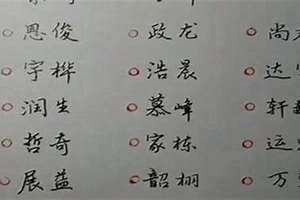 恩俊 政龙 尚
宇桦 浩晨 达
润生 慕峰 轩
哲奇 家栋 运
展益 韶栩 万